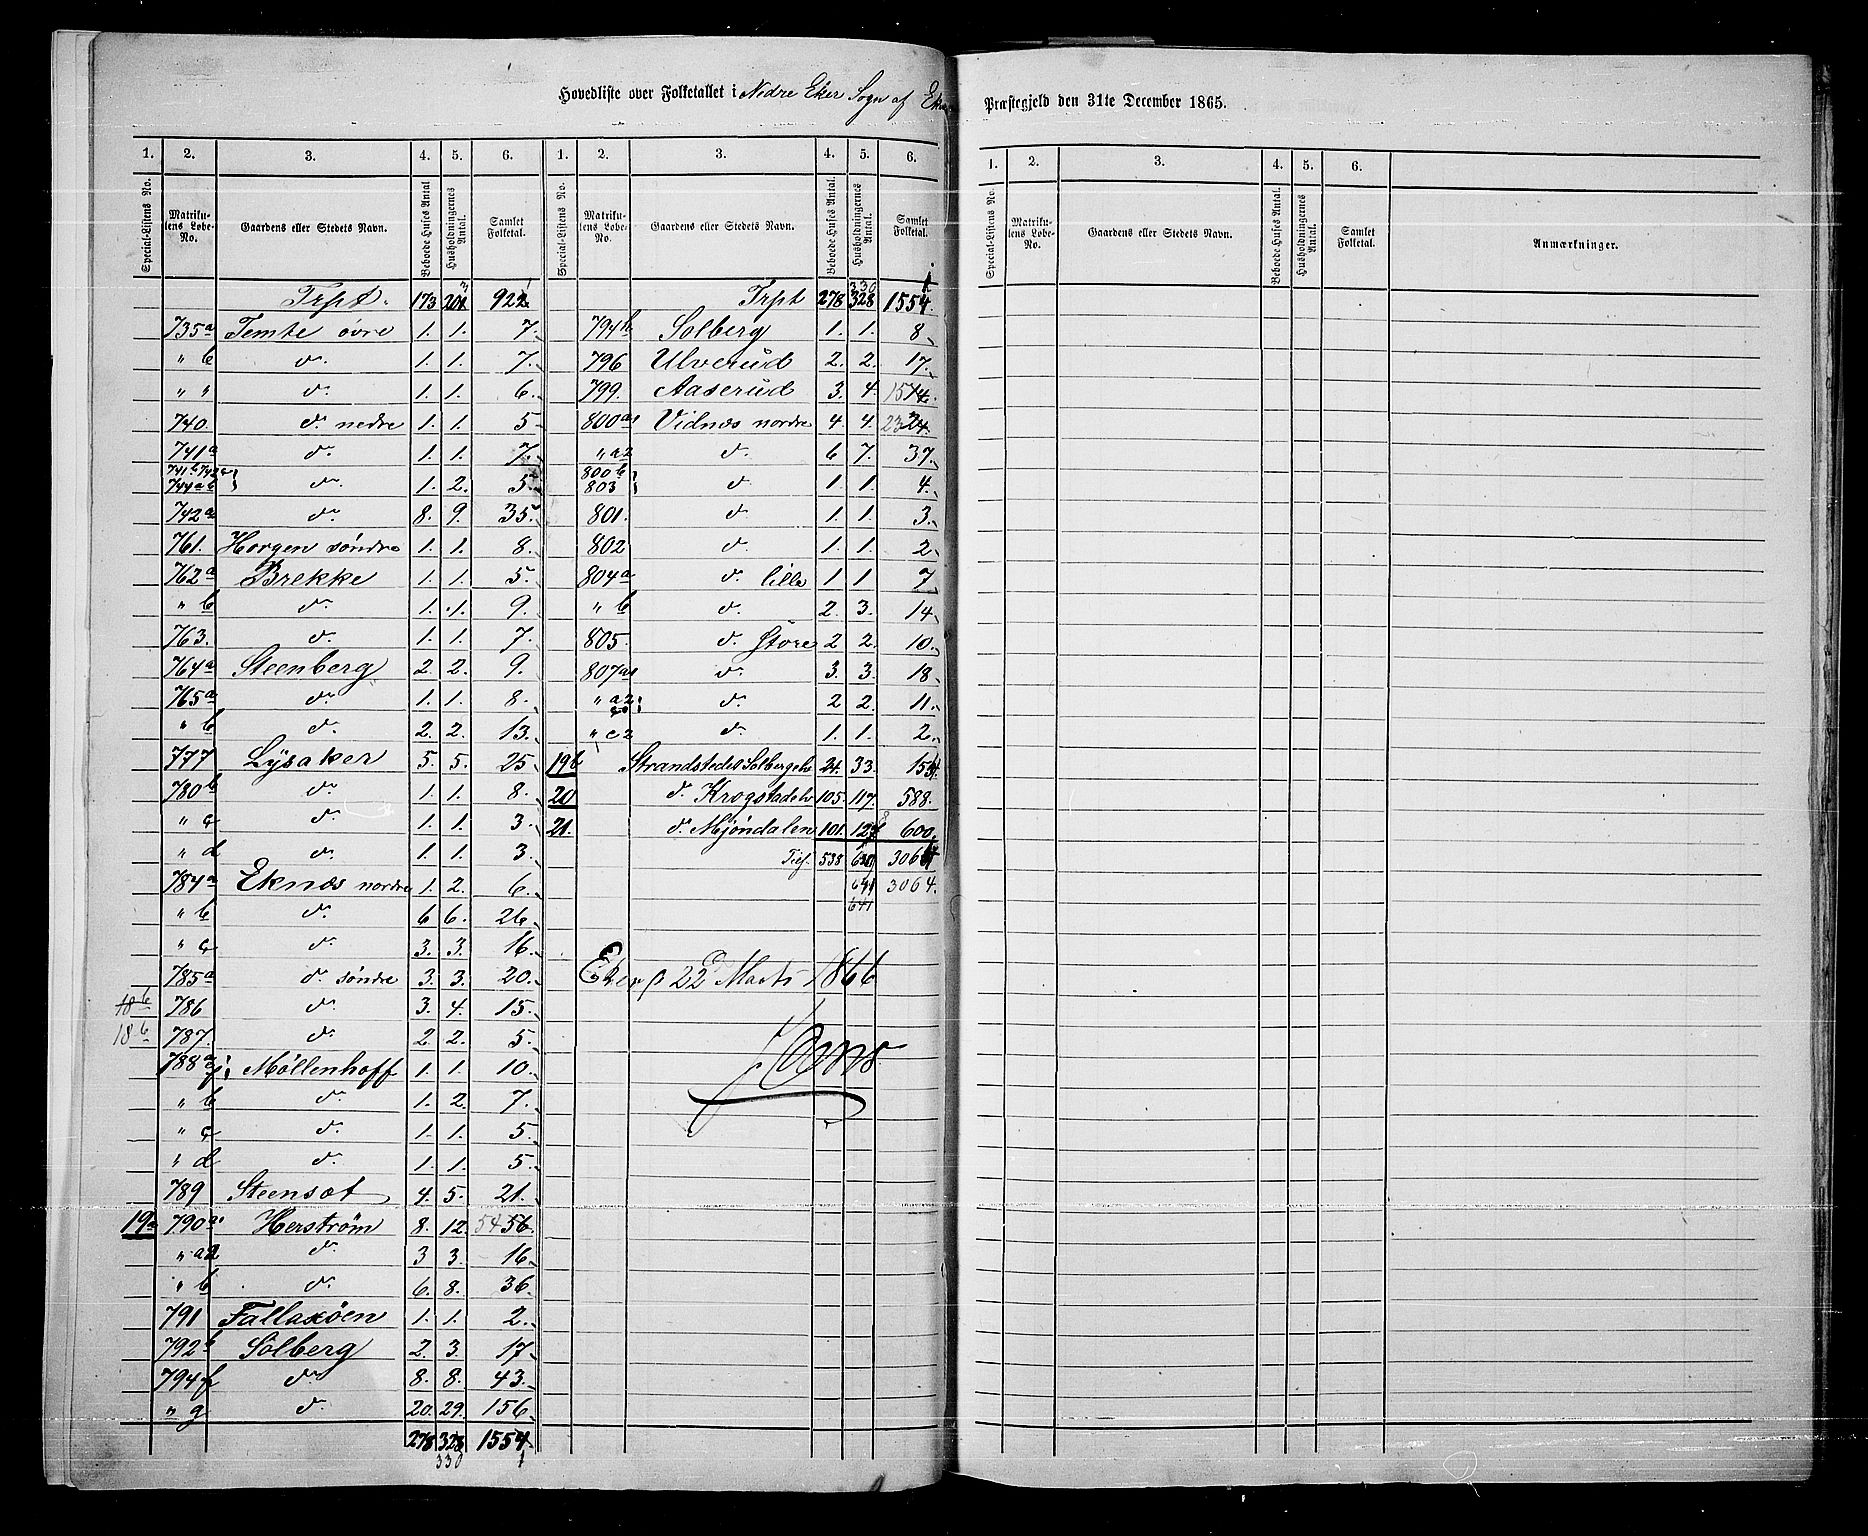 Hovedliste over Folketallet i Nedre Eker Sogn af Eker Præstegjeld den 31te December 1865.
1. 2. 3. 4. 5. 6. 1. 2. 3. 4. 5. 6.
Special-Listens No. Matrikulens Løbe-No. Gaardens eller Stedets Navn. Beboede Huses Antal Husholdningernes Antal. Samlet Folketal.
Trpt. 173 201 922
735a Temte övre 1. 1. 7.
" b do 1. 1. 7.
" " do 1. 1. 6.
740. do nedre 1. 1. 5
741a do 1. 1. 7.
741b 742 744ab do 1. 2. 5
742a do 8. 9. 35.
761. Horgen söndre 1. 1. 8.
762a Brekke 1. 1. 5.
" b do 1. 1. 9.
763. do 1. 1. 7.
764a Steenberg 2. 2. 9.
765a do 1. 1. 8.
" b do 2. 2. 13.
777 Lysaker 5. 5. 25
780b do 1. 1. 8.
" c do 1. 1. 3.
" d do 1. 1. 3.
784a Eknæs nordre 1. 2. 6.
" b do 6 6. 26.
" c do 3. 3. 16.
785a do söndre 3. 3. 20.
18b 786 do 3. 4. 15.
18b 787. do 2. 2. 5.
788a Möllenhoff 1. 1. 10.
" b do 1. 2. 7.
" c do 1. 1. 5.
" d do 1. 1. 5.
789 Steensæt 4. 5. 21.
19a 790a1 Herström 8. 12. 54 56.
" a2 do 3 3. 16
" b do 6. 8. 36.
791 Fallaxöen 1. 1. 2.
792b Solberg 2. 3. 17
794f do 8. 8. 43.
" g do 20. 29. 156
278 328 1554
330 1
Special-Listens No. Matrikulens Løbe-No. Gaardens eller Stedets Navn. Beboede Huses Antal. Husholdningernes Antal. Samlet Folketal.
330 1
Trpt 278 328 1554.
794h Solberg 1. 1. 8
796 Ulverud 2. 2. 17.
799. Aaserud 3. 4. 15 14.
800a1 Vidnæs nordre 4. 4. 23 24.
" a2 do 6 7. 37.
800b 803 do 1. 1. 4.
801. do 1. 1. 3.
802 do 1. 1. 2
804a do lille 1 1 7
" b do 2. 3. 14
805. do Store 2 2. 10.
807a1 do 3. 3. 18
" a2 do 2 2. 11.
" c2 do 1. 1. 2.
19b Strandstedet Solbergelv 24. 33. 154
20 do Krogstadelv 105. 117. 588.
21. do Mjöndalen 101. 127 600
Tils. 538
641 3064.
641
Eker p 22 Marts 1866
1. 2. 3. 4. 5. 6.
Special-Listens No. Matrikulens Løbe-No. Gaardens eller Stedets Navn. Beboede Huses Antal. Husholdningernes Antal. Samlet Folketal. Anmærkninger.